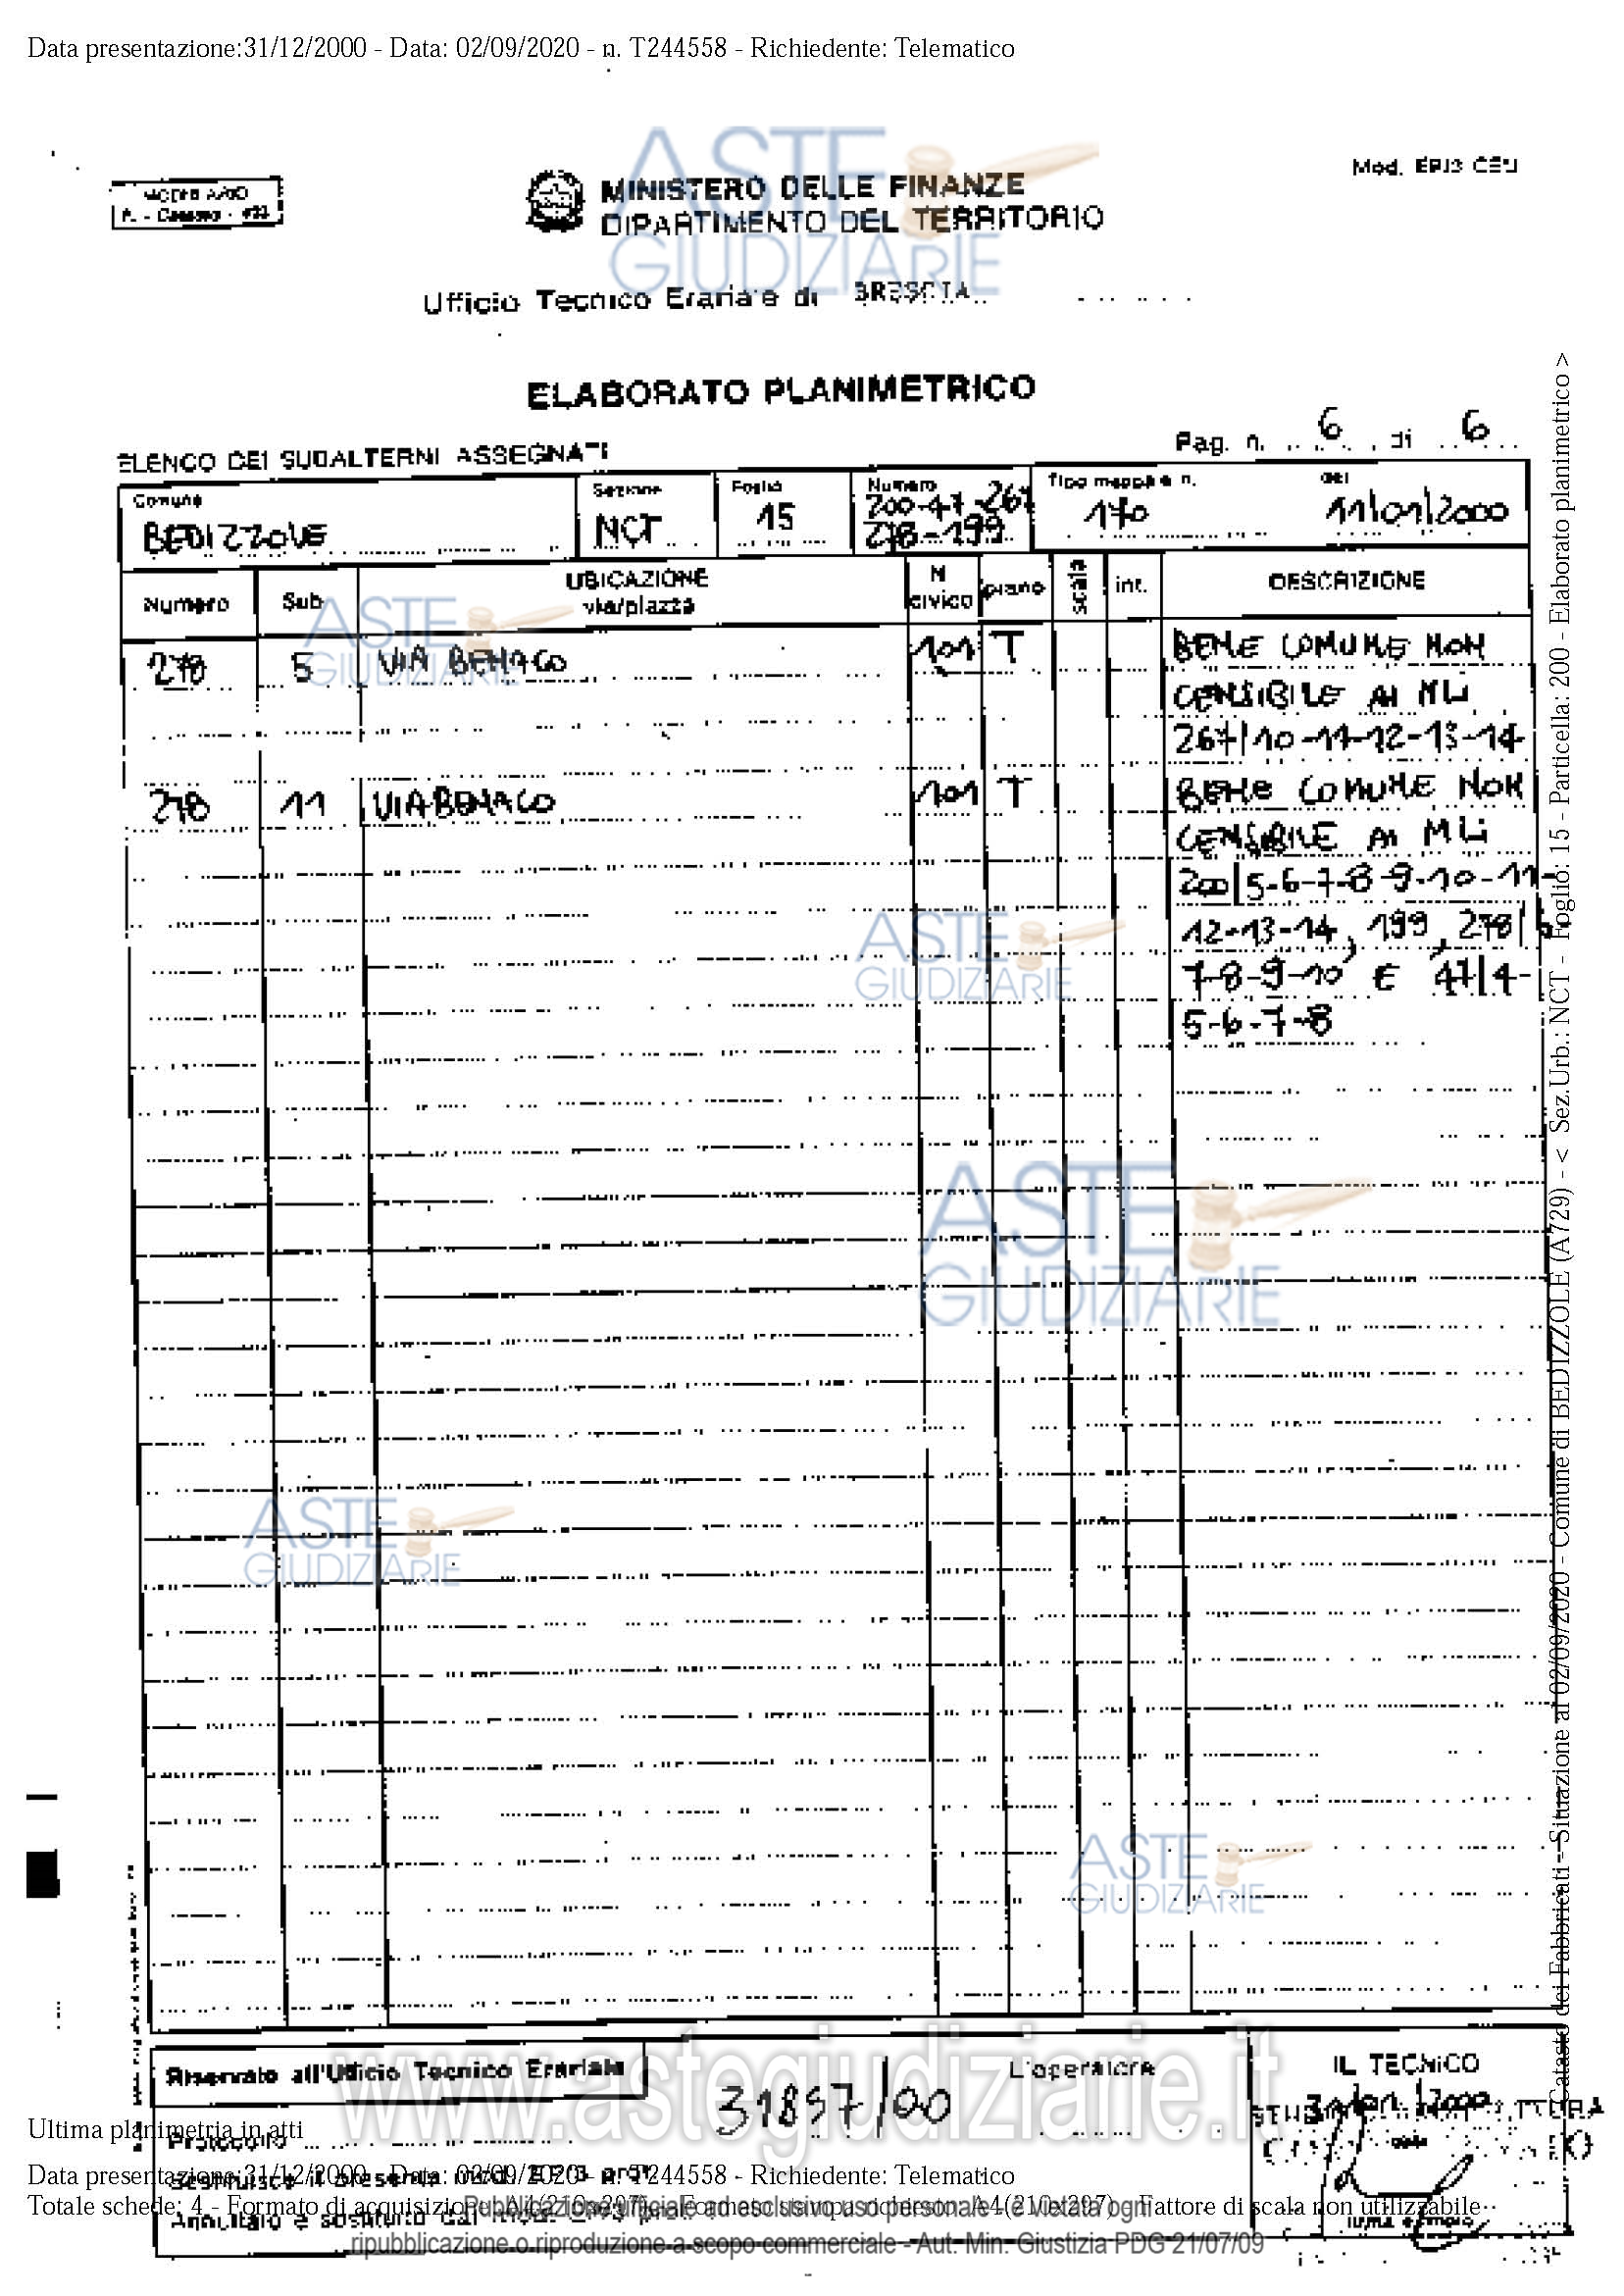 Data presentazione:31/12/2000 - Data: 02/09/2020 - n. T244558 - Richiedente: Telematico
Mod. EP/3 CEU
MINISTERO DELLE FINANZE
DIPARTIMENTO DEL TERRITORIO
ASTE
GIUDIZIARIE
Ufficio Tecnico Erariale di BRESCIA
ELABORATO PLANIMETRICO
ELENCO DEI SUBALTERNI ASSEGNATI
Pag. n. 6 di 6
Comune Sezione Foglio Numero Tipo mappale n. del
BEDIZZOLE NCT 15 200-47-267 170 11/01/2000
278-199
Numero Sub UBICAZIONE via/piazza N civico piano scala int. DESCRIZIONE
278 5 VIA BENACO 101 T BENE COMUNE NON
CENSIBILE AI MLI
267/10-11-12-13-14
278 11 VIA BENACO 101 T BENE COMUNE NON
CENSIBILE AI MLI
200/5-6-7-8-9-10-11-
12-13-14, 199, 278/6
7-8-9-10 E 47/4-
5-6-7-8
ASTE
GIUDIZIARIE
ASTE
GIUDIZIARIE
ASTE
GIUDIZIARIE
ASTE
GIUDIZIARIE
ASTE
GIUDIZIARIE
Catasto dei Fabbricati - Situazione al 02/09/2020 - Comune di BEDIZZOLE (A729) - < Sez.Urb.: NCT - Foglio: 15 - Particella: 200 - Elaborato planimetrico >
www.astegiudiziarie.it
Riservato all'Ufficio Tecnico Erariale
31897/00
L'operatore
IL TECNICO
Ultima planimetria in atti
Protocollo
Data presentazione:31/12/2000 - Data: 02/09/2020 - n. T244558 - Richiedente: Telematico
Totale schede: 4 - Formato di acquisizione: A4(210x297) - Formato stampa richiesto: A4(210x297) - Fattore di scala non utilizzabile
Pubblicazione ufficiale ad esclusivo uso personale - è vietata ogni
ripubblicazione o riproduzione a scopo commerciale - Aut. Min. Giustizia PDG 21/07/09